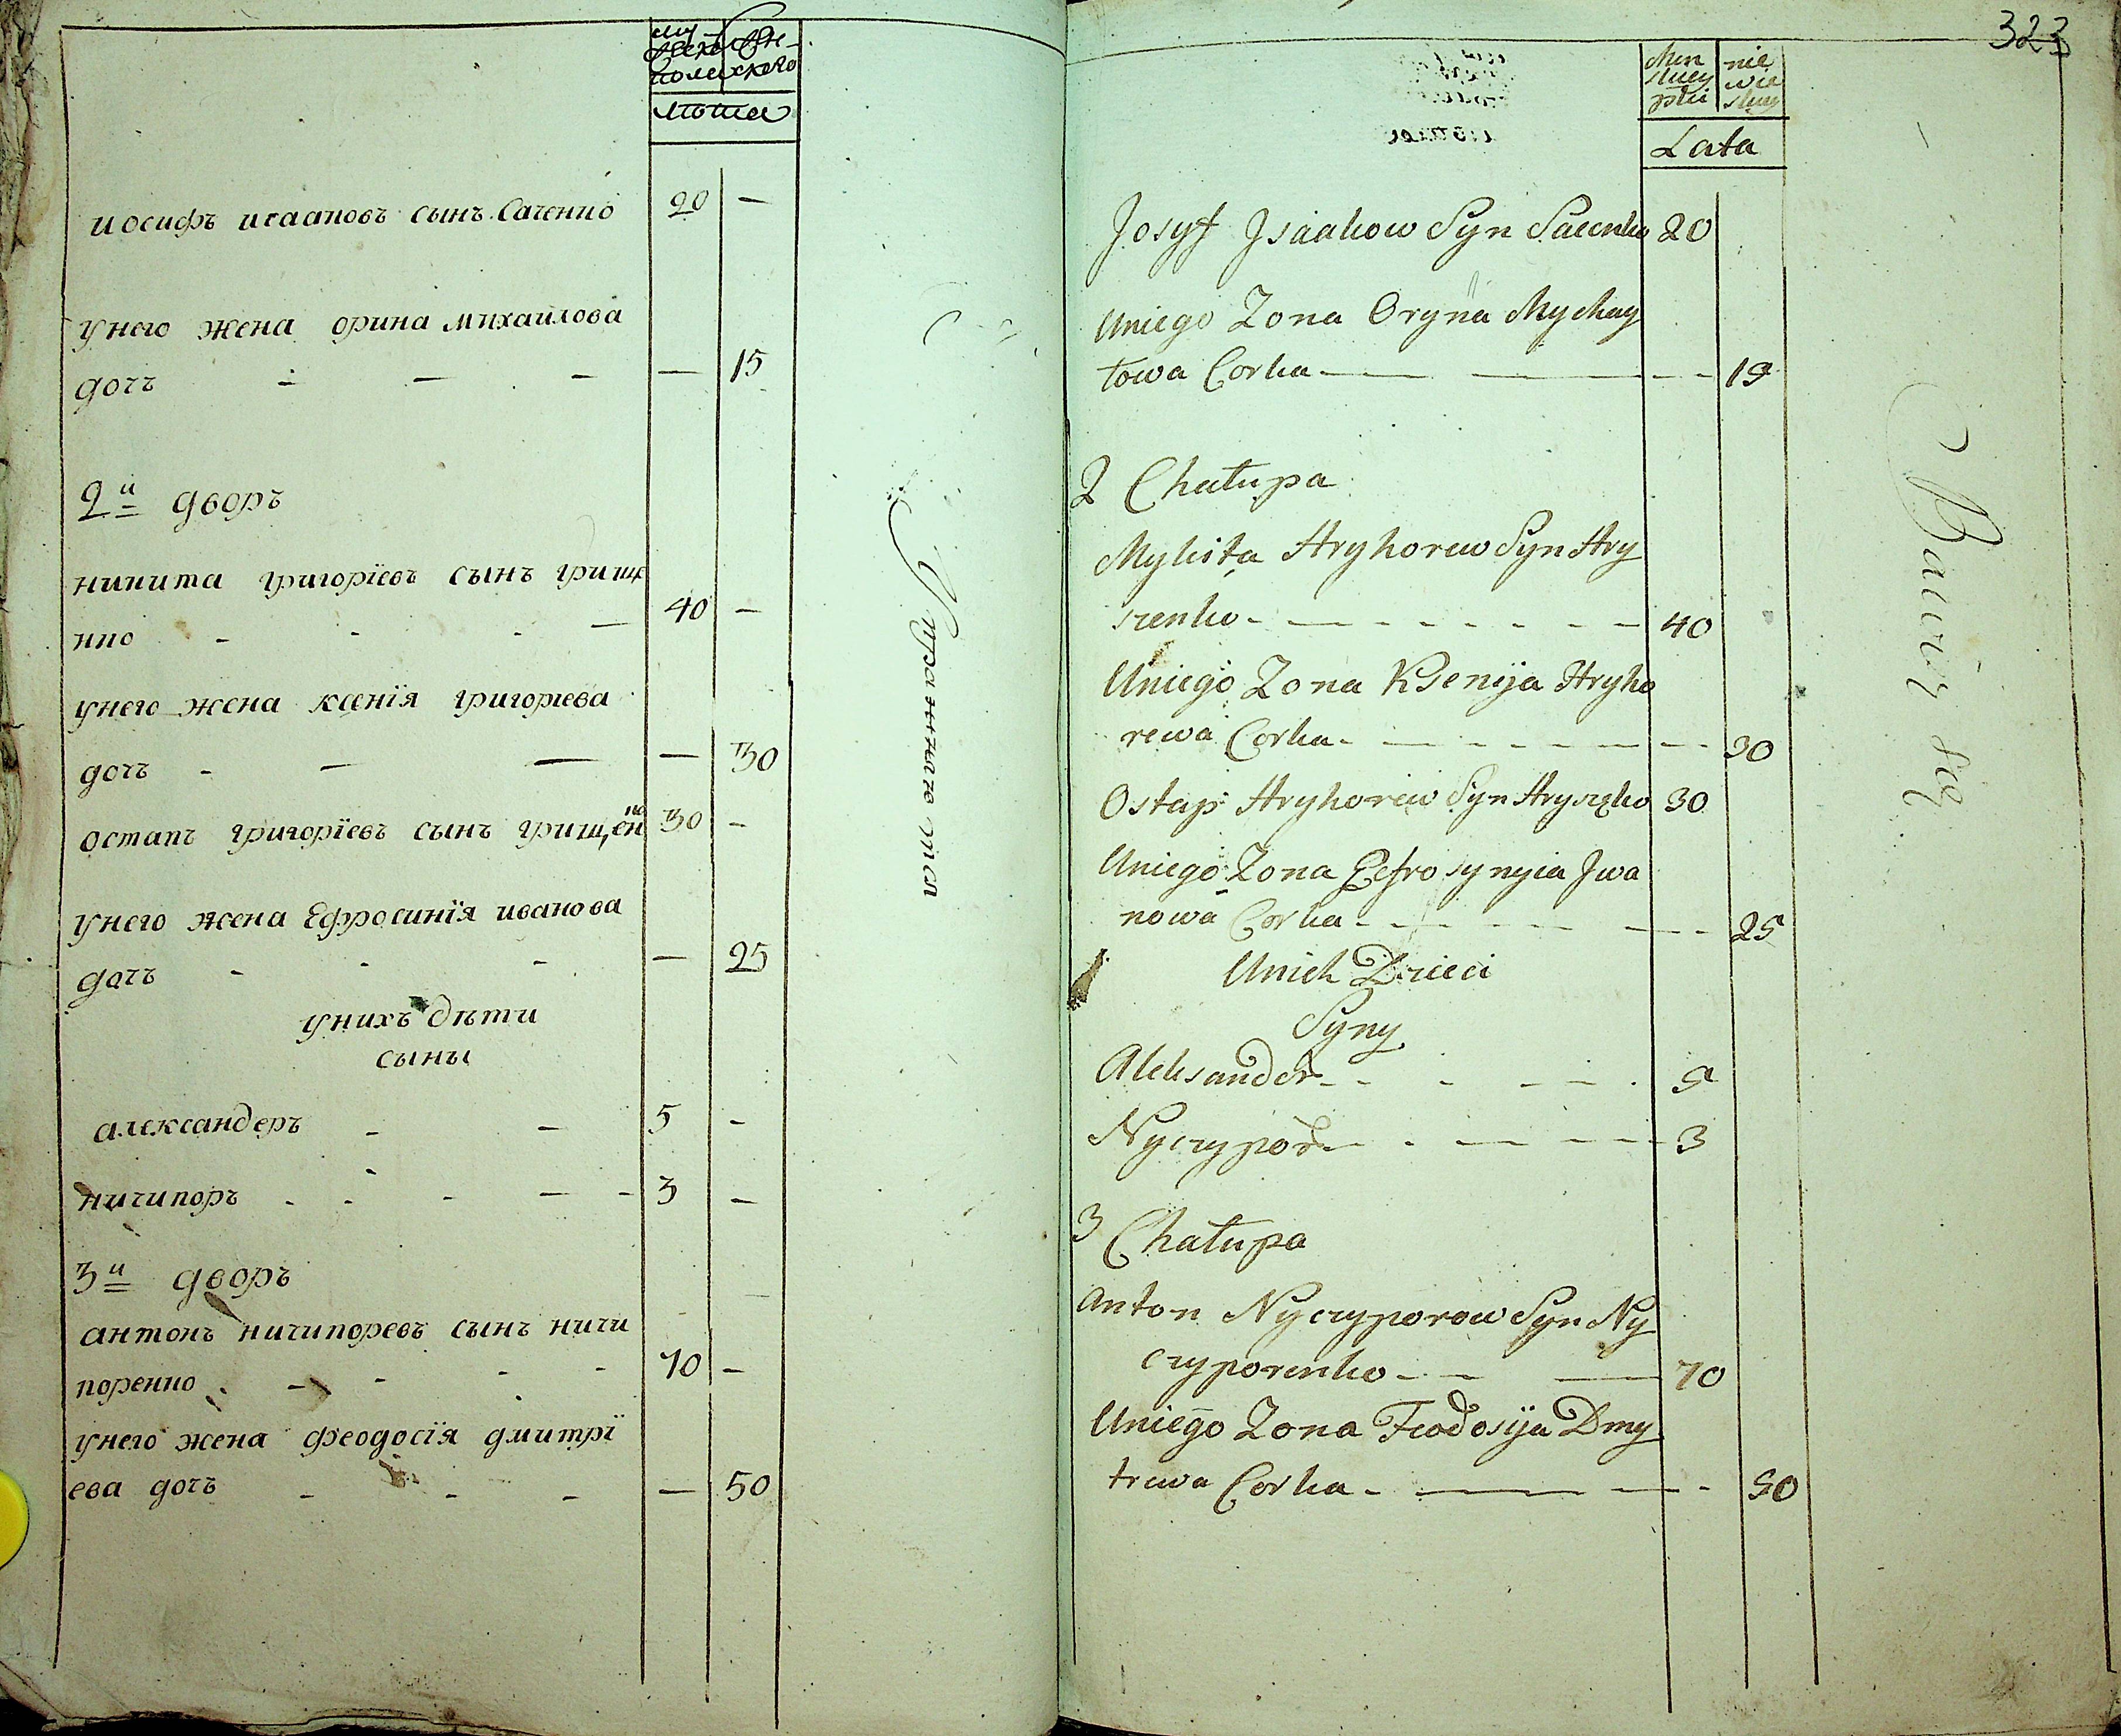 му женско
полу ского
лѣта
иосифъ исааковъ сынъ Саченко 20 —
унего жена орина михайлова
дочъ — — — — 15
2й дворъ
никита григоріевъ сынъ грище
нко - - - — 40 —
унего жена ксенія григорїева
дочъ - — — — 30
остапъ григоріевъ сынъ грищенко 30 —
унего жена Ефросинія иванова
дочъ - - - — 25
унихъ дѣти
сыны
александеръ - — 5 -
ничипоръ - - - — - 3 —
3й дворъ
антонъ ничипоревъ сынъ ничи
поренко - — - - - 70 —
унего жена феодосія дмитрї
ева дочъ - - - — 50
323
Men skiey płci
nie wie skiey
Lata
Josyf Jsaakow Syn Sacenko 20
Uniego Zona Oryna Mychay
łowa Corka — — — - - 19
2 Chałupa
Mykita Hryhorew Syn Hry
szenko - — - - - - — 40
Uniego Zona Ksenija Hryho
rewa Corka - — - - - — - - 30
Ostap Hryhorew Syn Hryszko 30
Uniego Zona Eefrosynyia Jwa
nowa Corka - - - - — - - 25
Unich Dzieci
Syny
Aleksander - - - - — . 5
Nyczypor - - - — - - 3
3 Chałupa
Anton Nyczyporow Syn Ny
czyporenko - - — 70
Uniego Zona Feodosija Dmy
trewa Corka - — — - 50